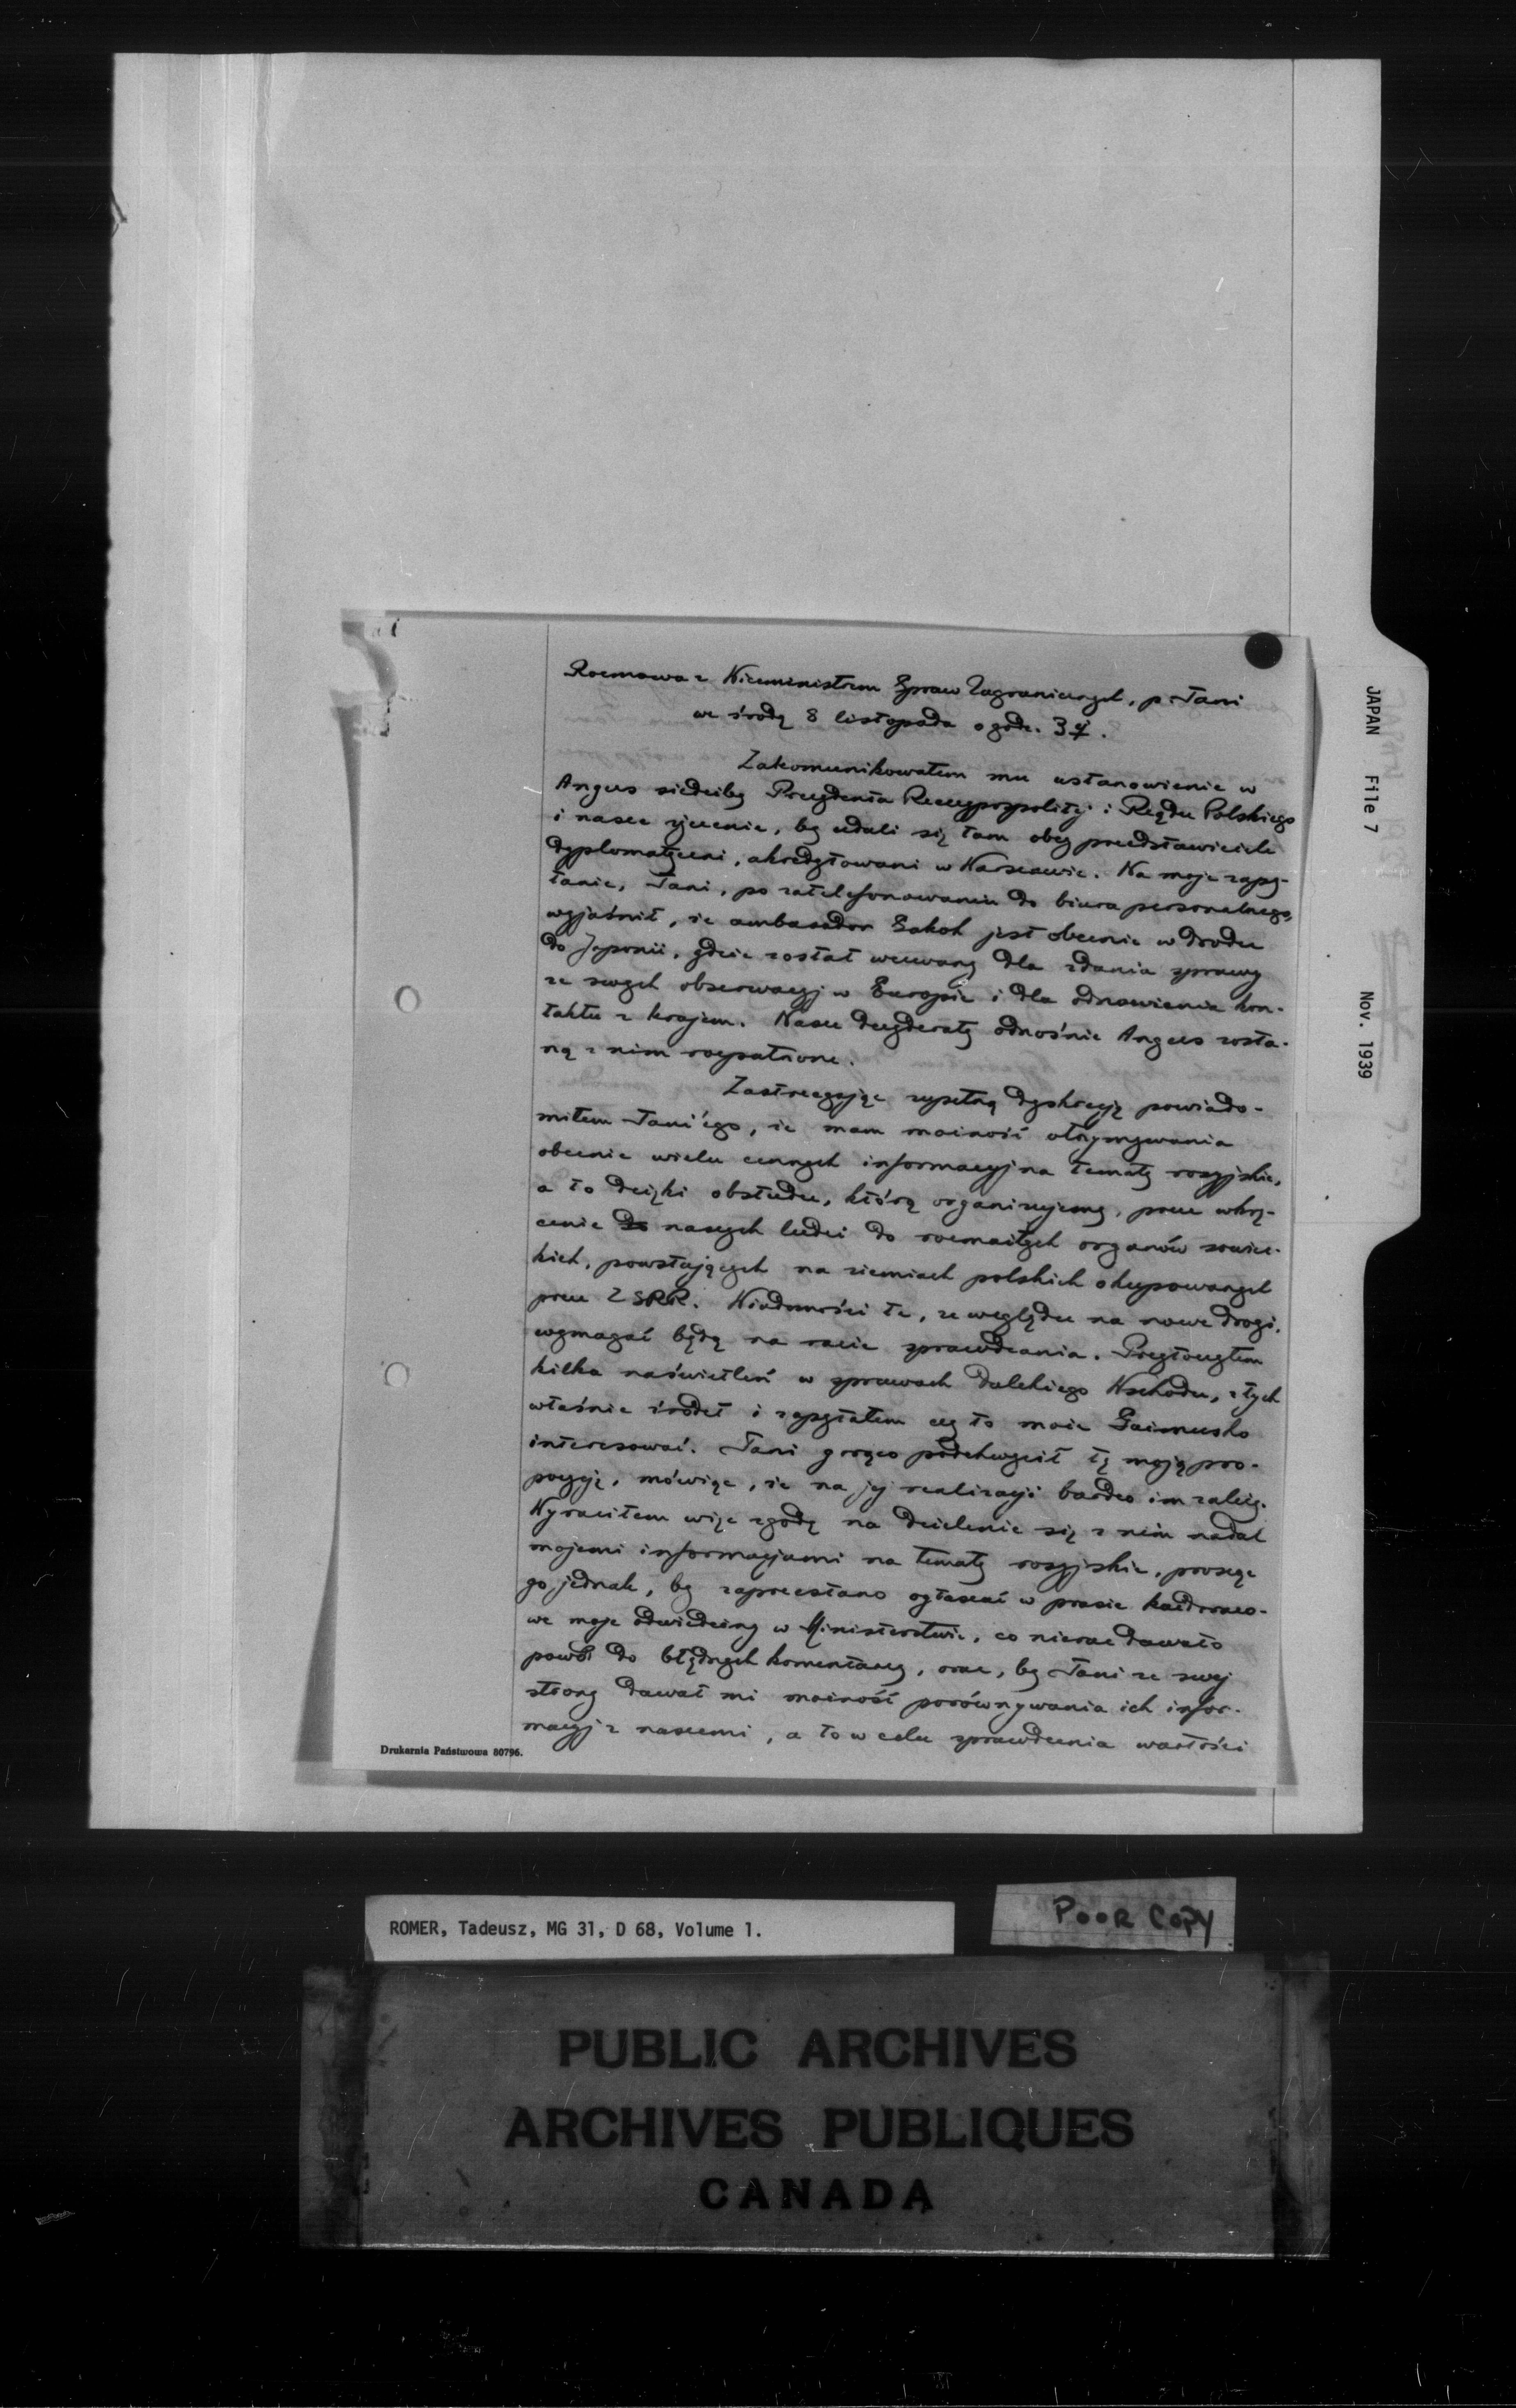 Rozmowa z Wiceministrem Spraw Zagranicznych, p. Tani
we środę 8 listopada o godz. 3
Zakomunikowałem mu ustanowienie w
Angers siedziby Prezydenta Rzeczypospolitej i Rządu Polskiego
i nasze życzenie, by udali się tam obcy przedstawiciele
dyplomatyczni, akredytowani w Warszawie. Na moje zapy-
tanie, Tani, po zatelefonowaniu do biura personalnego,
wyjaśnił, że ambasador Sakoh jest obecnie w drodze
do Japonii, gdzie został wezwany dla zdania sprawy
ze swych obserwacyj w Europie i dla odnowienia kon-
taktu z krajem. Nasze dezyderaty odnośnie Angers zosta-
ną z nim rozpatrzone.
Zastrzegając zupełną dyskrecję powiado-
miłem Tani'ego, że mam możność otrzymywania
obecnie wielu cennych informacyj na tematy rosyjskie,
a to dzięki obsłudze, którą organizujemy, przez wkrę-
cenie do naszych ludzi do rozmaitych organów sowiec-
kich, powstających na ziemiach polskich okupowanych
przez ZSRR. Wiadomości te, ze względu na nowe drogi,
wymagać będą na razie sprawdzania. Przytoczyłem
kilka naświetleń w sprawach Dalekiego Wschodu, z tych
właśnie źródeł i zapytałem czy to może Gaimusho
interesować. Tani gorąco podchwycił tę moją pro-
pozycję, mówiąc, że na jej realizacji bardzo im zależy.
Wyraziłem więc zgodę na dzielenie się z nim nadal
mojemi informacjami na tematy rosyjskie, prosząc
go jednak, by zaprzestano ogłaszać w prasie każdorazo-
we moje odwiedziny w Ministerstwie, co nieraz dawało
powód do błędnych komentarzy, oraz, by Tani ze swej
strony dawał mi możność porównywania ich infor-
macyj z naszemi, a to w celu sprawdzenia wartości
Drukarnia Państwowa 80796.
JAPAN File 7 Nov. 1939
ROMER, Tadeusz, MG 31, D 68, Volume 1.
POOR COPY
PUBLIC ARCHIVES
ARCHIVES PUBLIQUES
CANADA